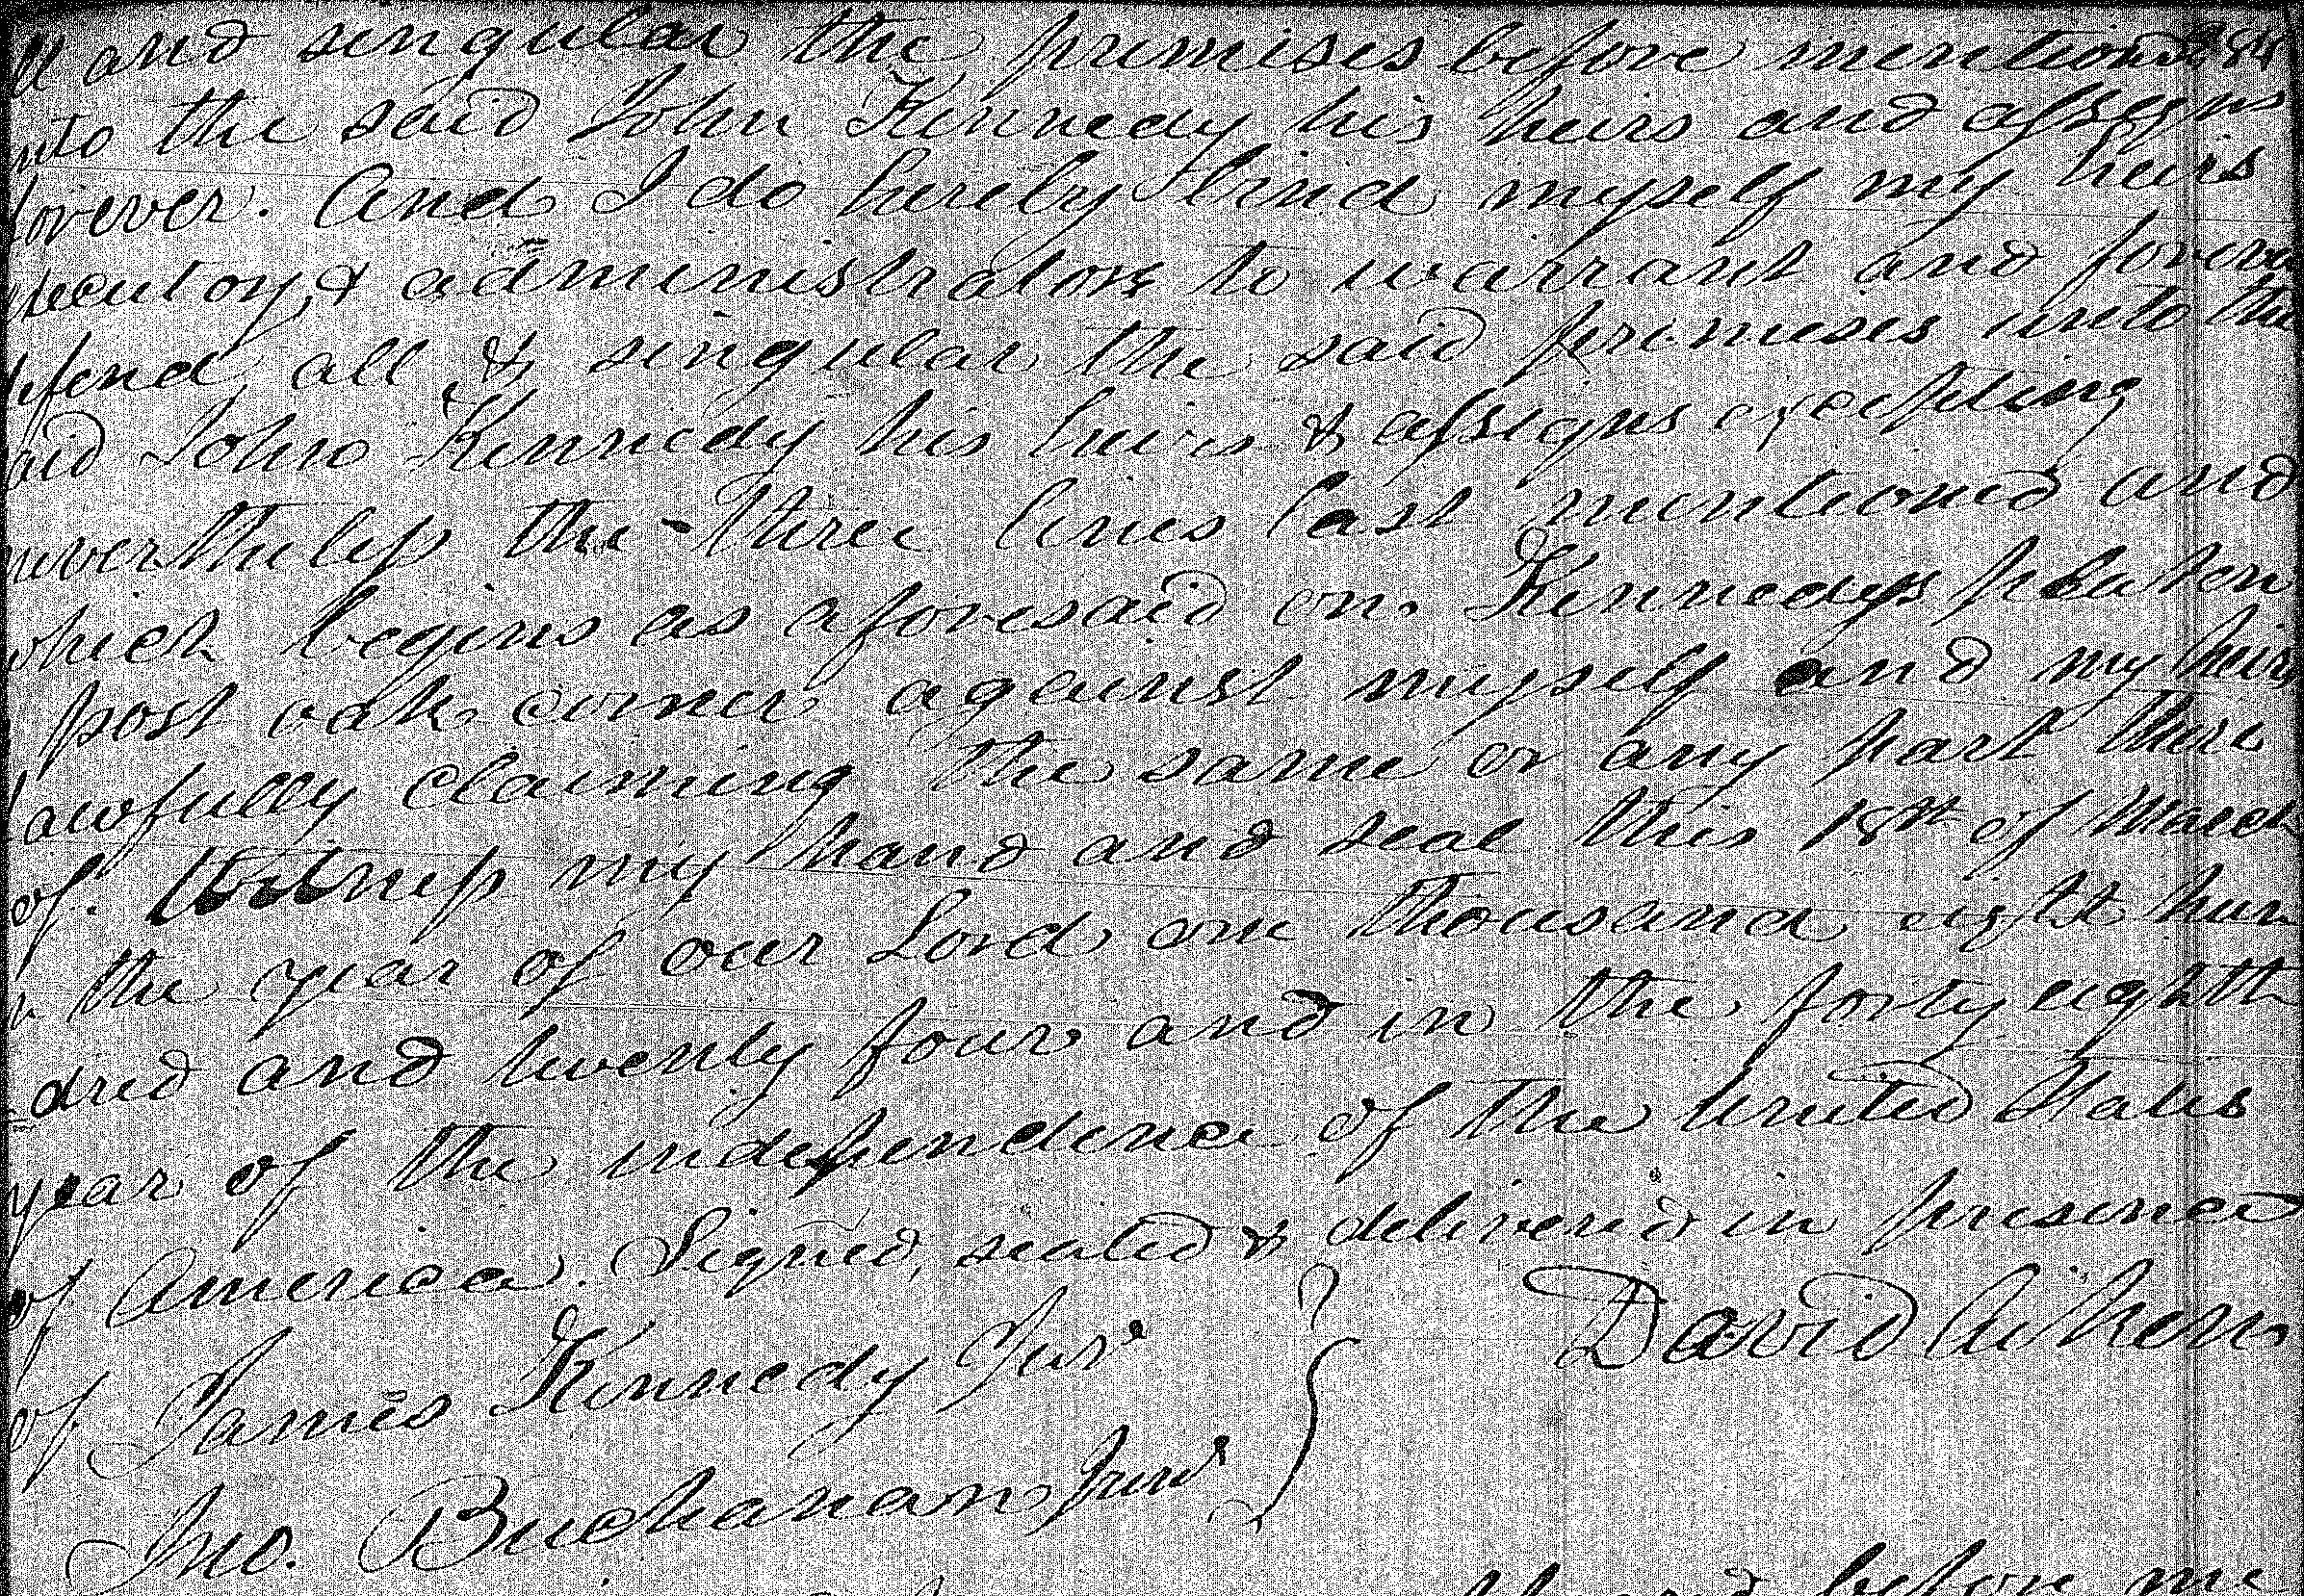 ll and singular the premises before mentiond
unto the said John Kennedy his heirs and assigns
forever. And I do hereby bind myself my heirs
executory, & administrators to warrant and forever
defend all & singular the said premises unto the
said John Kennedy his heirs & assigns excepting
nevertheless the three lines last mentioned and
which begins as aforesaid on Kennedys
post oak corner against myself and my heirs
lawfully claiming the same or any part there
of. Witness my hand and seal this 18th of March
in the year of our Lord one thousand eight hun
=dred and twenty four and in the forty eighth
year of the independence of the United States
of America. Signed, sealed & delivered in presence
of James Kennedy Junr } David Aiken
Jno. Buchanan Junr
before me